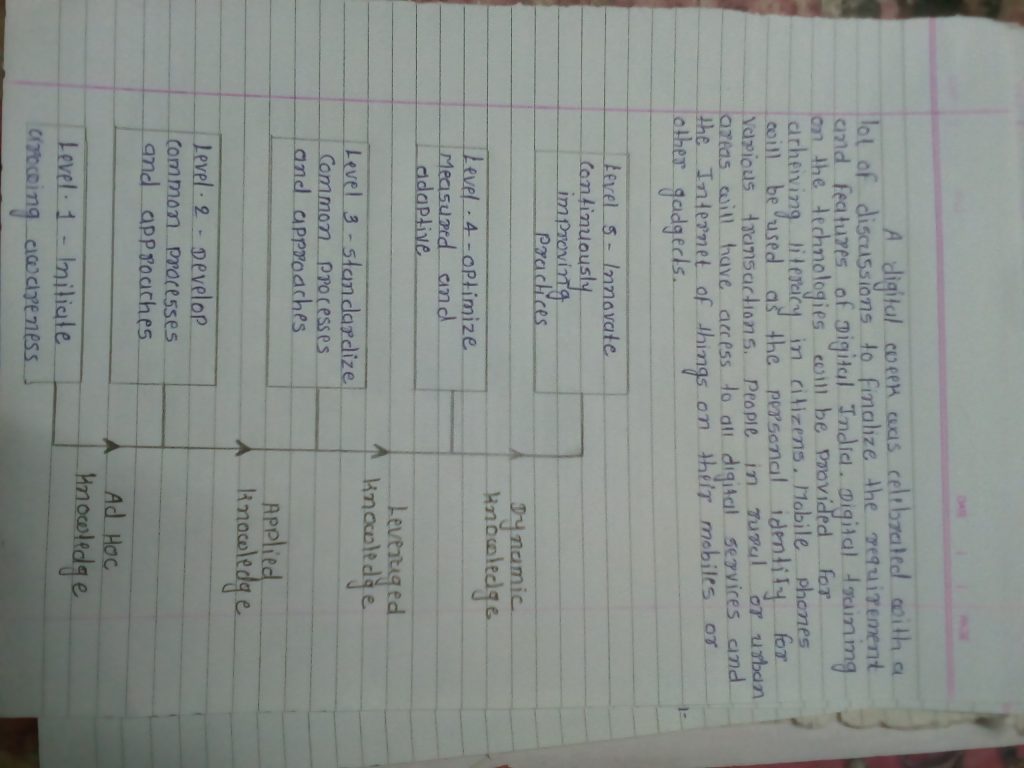 A digital week was celebrated with a
lot of discussions to finalize the requirement
and features of Digital India. Digital training
on the technologies will be provided for
acheiving literacy in citizens. Mobile phones
will be used as the personal identify for
various transactions. people in rural or urban
areas will have access to all digital services and
the Internet of things on their mobiles or
other gadgects.
Level 5 - Innovate
Continuously
improving
practices
Dynamic
knowledge
Level - 4 - optimize
Measured and
adaptive
Leveraged
knowledge
Level 3 - standardize
Common processes
and approaches
Applied
knowledge
Level - 2 - Develop
common processes
and approaches
Ad Hoc
knowledge
Level - 1 - Initiate
Growing awareness